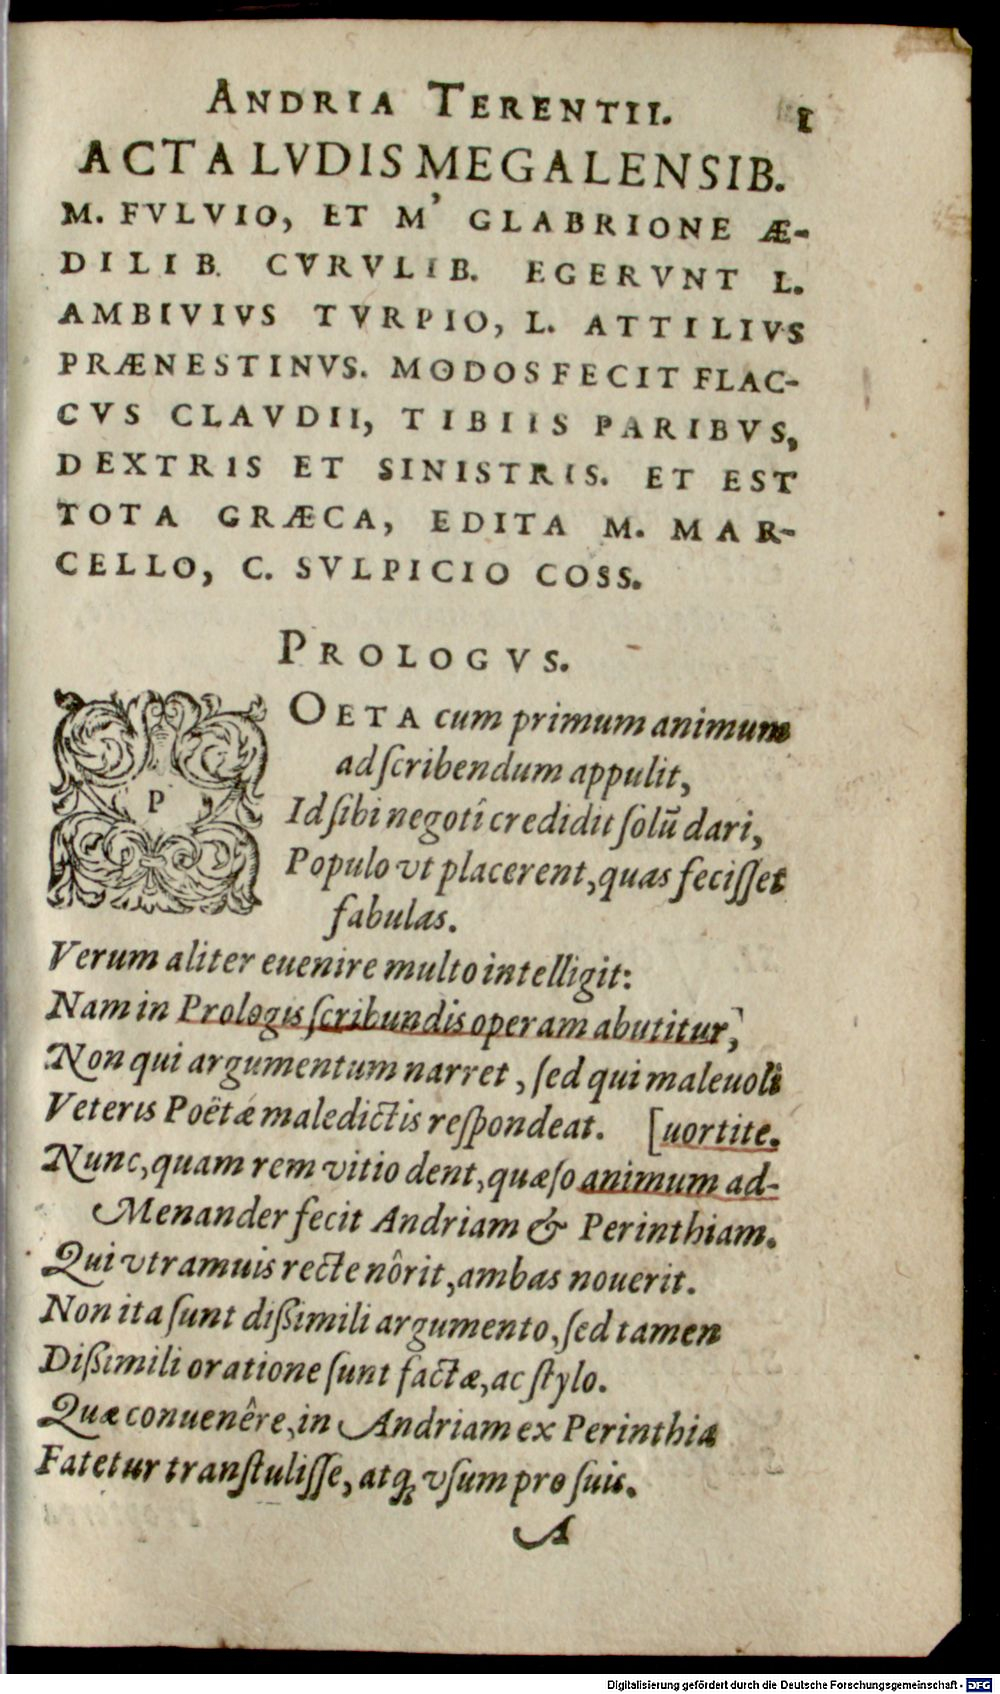 ANDRIA TERENTII. 1
ACTA LVDIS MEGALENSIB.
M. FVLVIO, ET M' GLABRIONE Æ-
DILIB. CVRVLIB. EGERVNT L.
AMBIVIVS TVRPIO, L. ATTILIVS
PRÆNESTINVS. MODOS FECIT FLAC-
CVS CLAVDII, TIBIIS PARIBVS,
DEXTRIS ET SINISTRIS. ET EST
TOTA GRÆCA, EDITA M. MAR-
CELLO, C. SVLPICIO COSS.
PROLOGVS.
POETA cum primum animum
ad ſcribendum appulit,
Id ſibi negotî credidit ſolũ dari,
Populo vt placerent, quas feciſſet
fabulas.
Verum aliter euenire multo intelligit:
Nam in Prologis ſcribundis operam abutitur,
Non qui argumentum narret, ſed qui maleuoli
Veteris Poëtæ maledictis reſpondeat. [uortite.
Nunc, quam rem vitio dent, quæſo animum ad-
Menander fecit Andriam & Perinthiam.
Qui vtramuis recte nôrit, ambas nouerit.
Non ita ſunt dißimili argumento, ſed tamen
Dißimili oratione ſunt factæ, ac ſtylo.
Quæ conuenêre, in Andriam ex Perinthia
Fatetur tranſtuliſſe, atq; vſum pro ſuis.
A
Digitalisierung gefördert durch die Deutsche Forschungsgemeinschaft - DFG